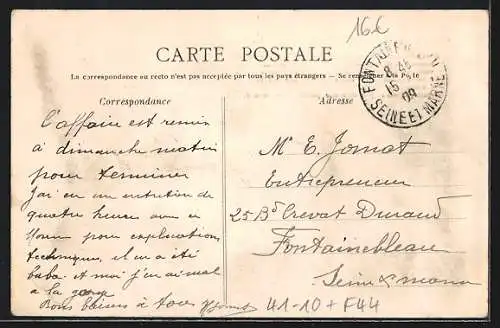 16€
CARTE POSTALE
La correspondance au recto n'est pas acceptée par tous les pays étrangers - Se à la Poste
Correspondance
Adresse
FONTAINEBLEAU
8 45
15
09
SEINE ET MARNE
L'affaire est remis
à dimanche matin
pour terminer
J'ai eu un entretien de
quatre heure avec
pour explications
techniques, il en a été
baba et moi j'en ai mal
à la
Bons baisers à tous
Mr E. Jomat
Entrepreneur
25 Bd Crevat Durand
Fontainebleau
Seine & marne
41-10 + F44